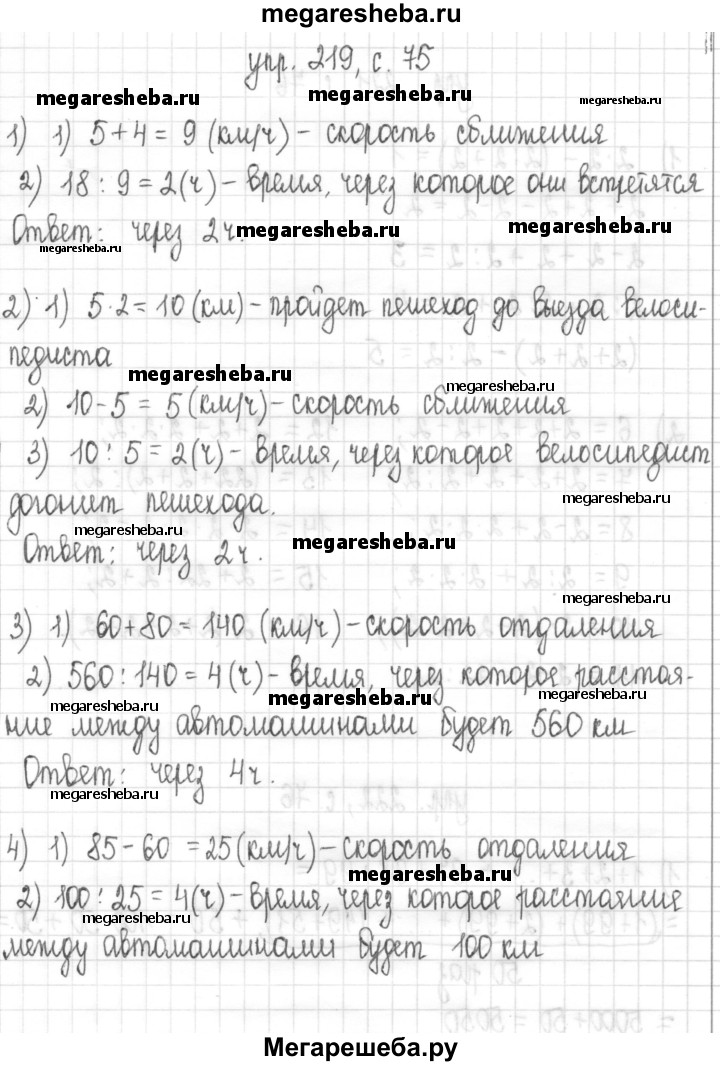 megaresheba.ru
упр. 219, с. 75
megaresheba.ru megaresheba.ru megaresheba.ru
1) 1) 5+4 = 9 (км/ч) - скорость сближения
2) 18 : 9 = 2(ч) - время, через которое они встретятся
Ответ: через 2ч. megaresheba.ru megaresheba.ru
megaresheba.ru
2) 1) 5·2 = 10 (км) - пройдет пешеход до выезда велоси-
педиста
megaresheba.ru megaresheba.ru
2) 10-5 = 5 (км/ч) - скорость сближения
3) 10 : 5 = 2(ч) - время, через которое велосипедист
догонит пешехода.
megaresheba.ru
megaresheba.ru
Ответ: через 2ч. megaresheba.ru
megaresheba.ru
3) 1) 60+80 = 140 (км/ч) - скорость отдаления
2) 560 : 140 = 4(ч) - время, через которое расстоя-
megaresheba.ru megaresheba.ru megaresheba.ru
ние между автомашинами будет 560 км
Ответ: через 4ч.
megaresheba.ru
4) 1) 85-60 = 25(км/ч) - скорость отдаления
megaresheba.ru
2) 100 : 25 = 4(ч) - время, через которое расстояние
megaresheba.ru megaresheba.ru
между автомашинами будет 100 км
Мегарешеба.ру